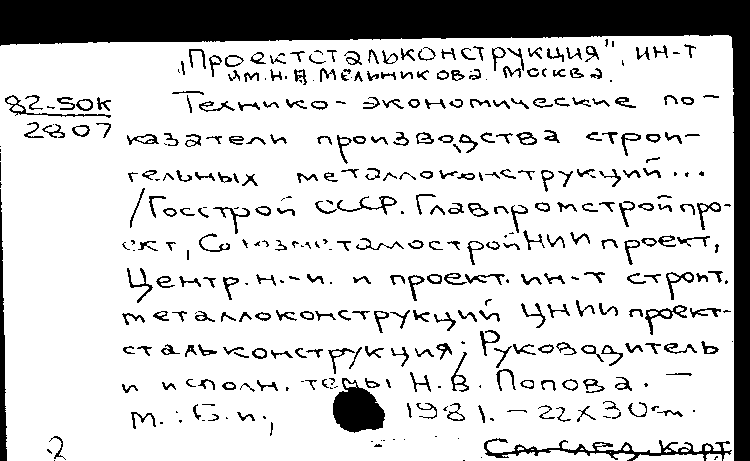 „Проектстальконструкция", ин-т
им. Н.П. Мельникова. Москва.
82-5OK
2807
Технико-экономические по-
казатели производства строи-
тельных металлоконструкций...
/Госстрой СССР. Главпромстройпро-
ект, СоюзметаллостройНИИпроект,
Центр. н.-и. и проект. ин-т строит.
металлоконструкций ЦНИИпроект-
стальконструкция; Руководитель
и исполн. темы Н.В. Попова. —
М.: Б.и., 1981. - 22х30см.
2
См. след. карт.